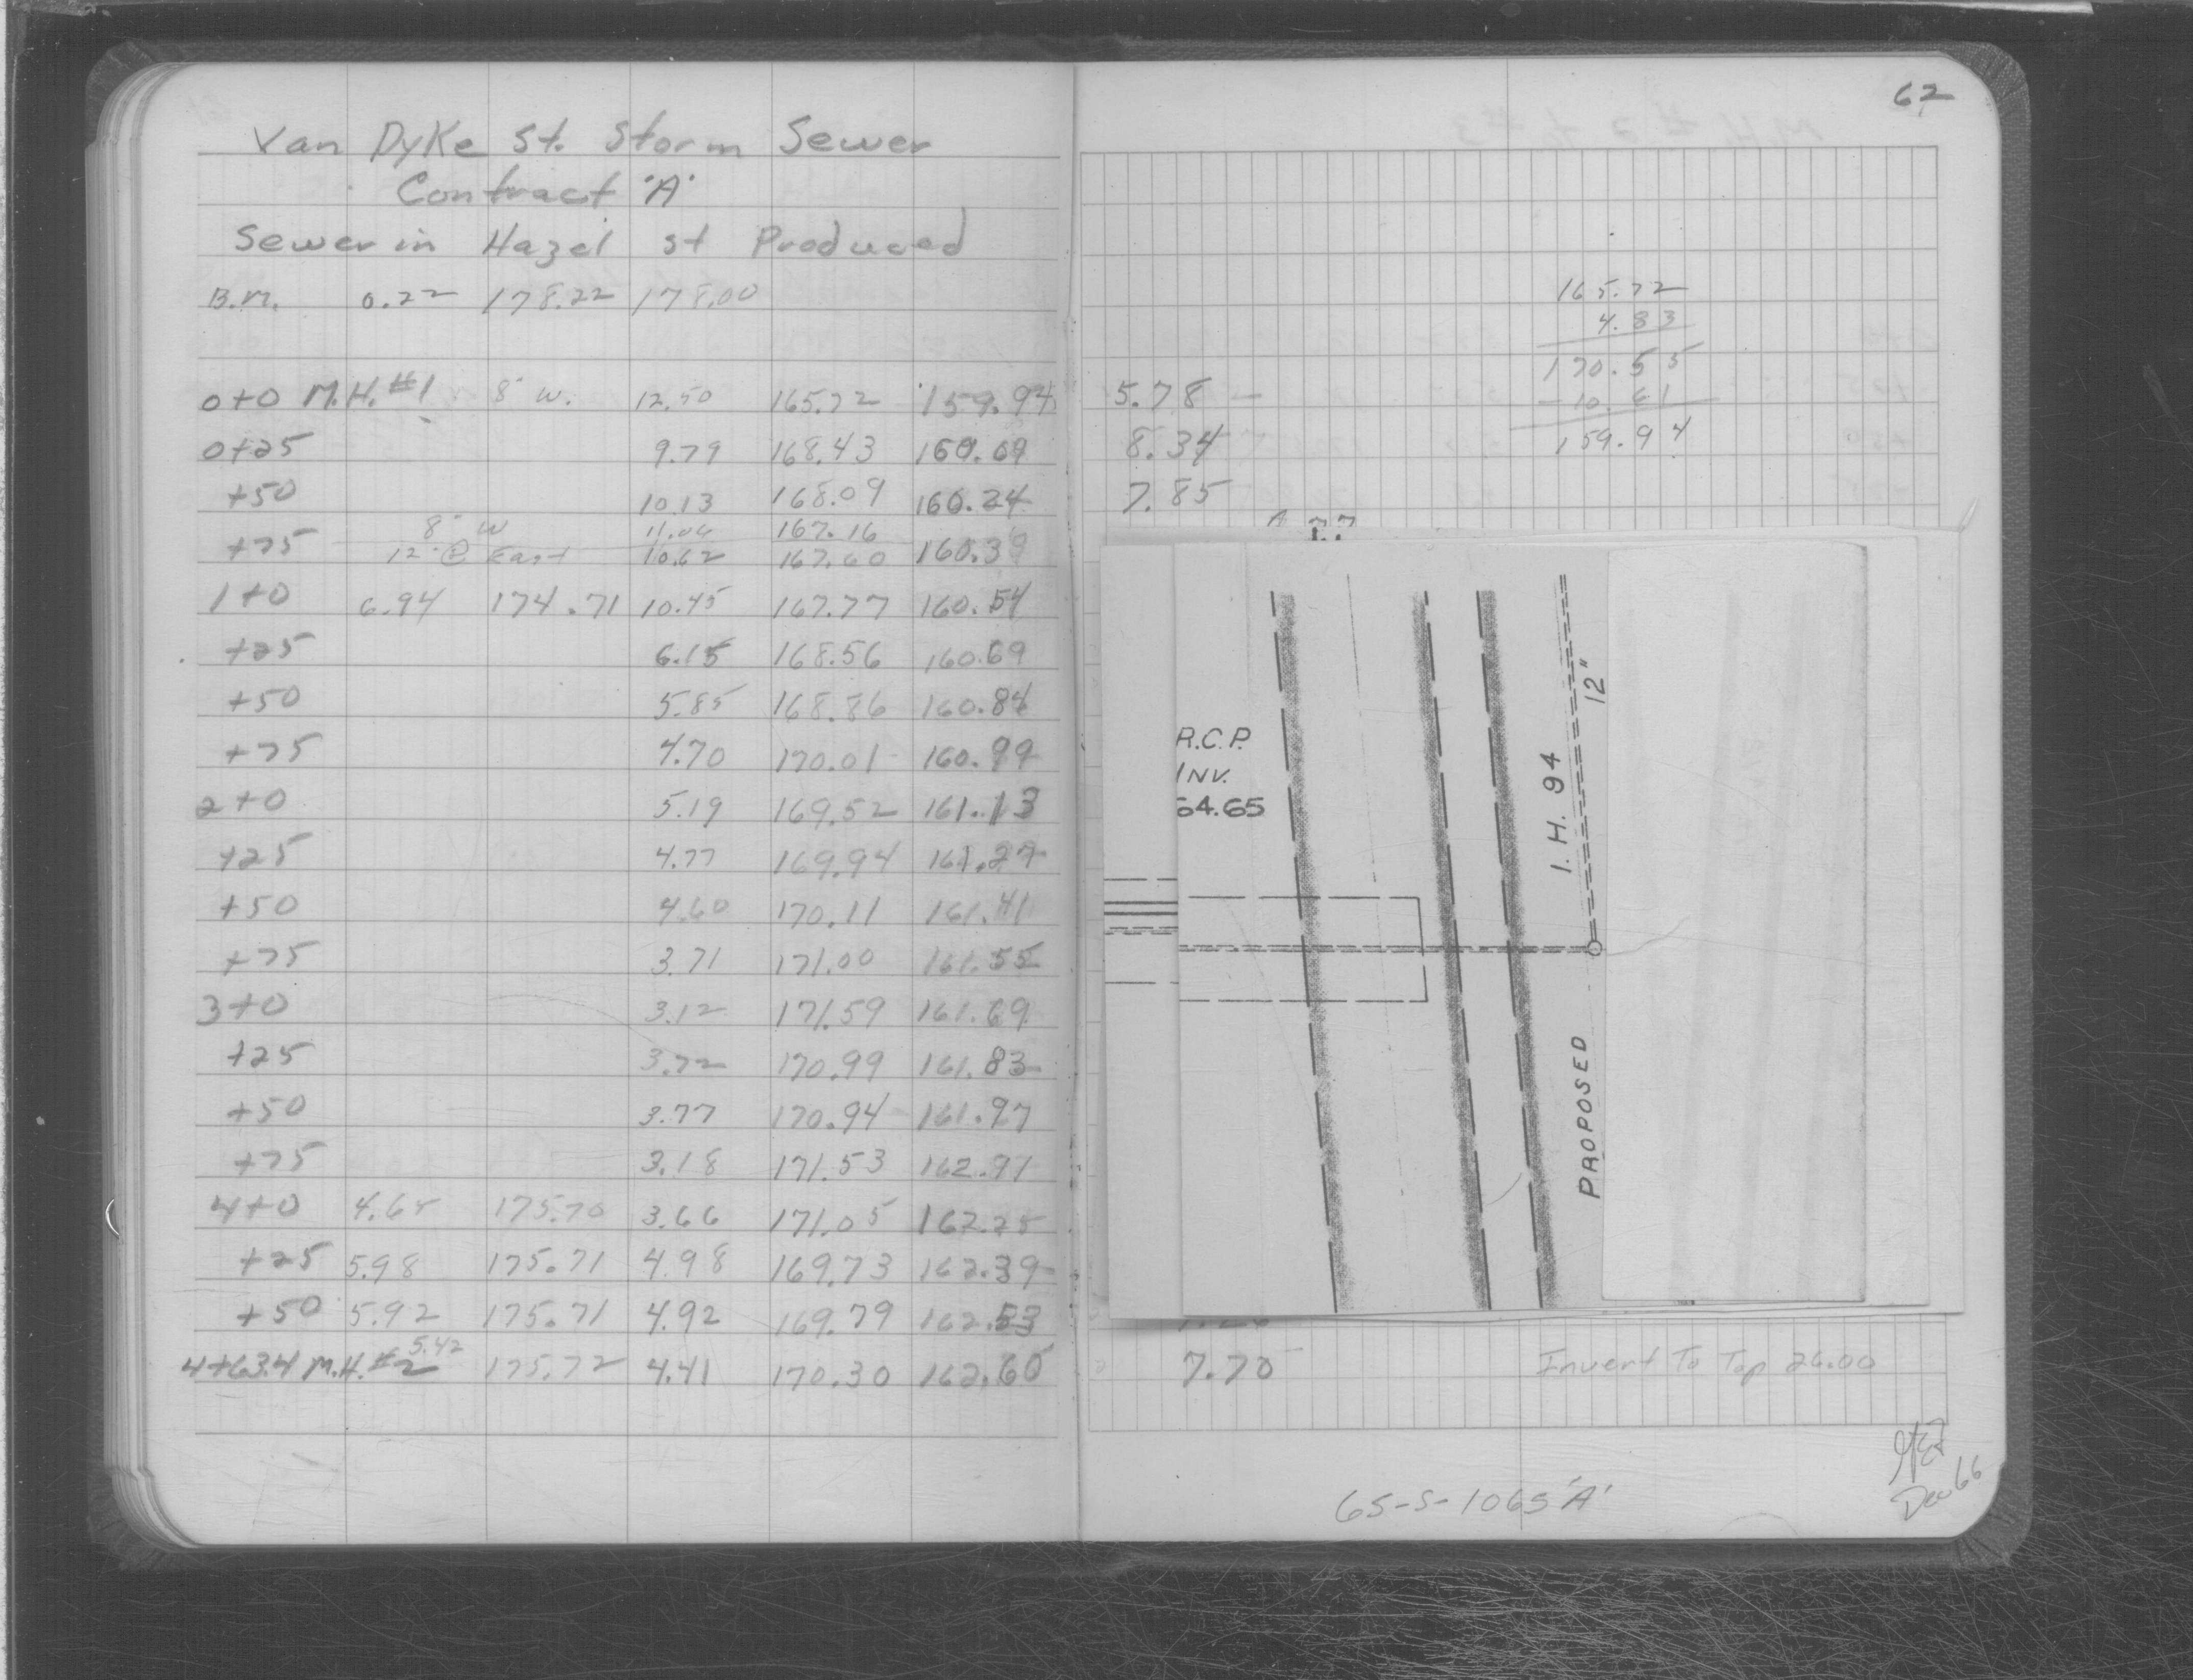 62
Van Dyke St. Storm Sewer
Contract "A"
Sewer in Hazel St Produced
B.M. 0.22 178.22 178.00
0+0 M.H. #1 8" W. 12.50 165.72 159.94 5.78
0+25 9.79 168.43 160.09 8.34
+50 10.13 168.09 160.24 7.85
8" W 11.06 167.16
+75 12" @ East 10.62 167.60 160.39
1+0 6.94 174.71 10.45 167.77 160.54
+25 6.15 168.56 160.69
+50 5.85 168.86 160.84
+75 4.70 170.01 160.99
2+0 5.19 169.52 161.13
+25 4.77 169.94 161.27
+50 4.60 170.11 161.41
+75 3.71 171.00 161.55
3+0 3.12 171.59 161.69
+25 3.72 170.99 161.83
+50 3.77 170.94 161.97
+75 3.18 171.53 162.97
4+0 4.65 175.70 3.66 171.05 162.25
+25 5.98 175.71 4.98 169.73 162.39
+50 5.92 175.71 4.92 169.79 162.53
4+63.4 M.H. #2 5.42 175.72 4.41 170.30 162.60 7.70
165.72
4.83
170.55
-10.61
159.94
R.C.P.
INV.
64.65
I. H. 94
12"
PROPOSED
Invert To Top 26.00
65-S-1065 'A'
Dec 66